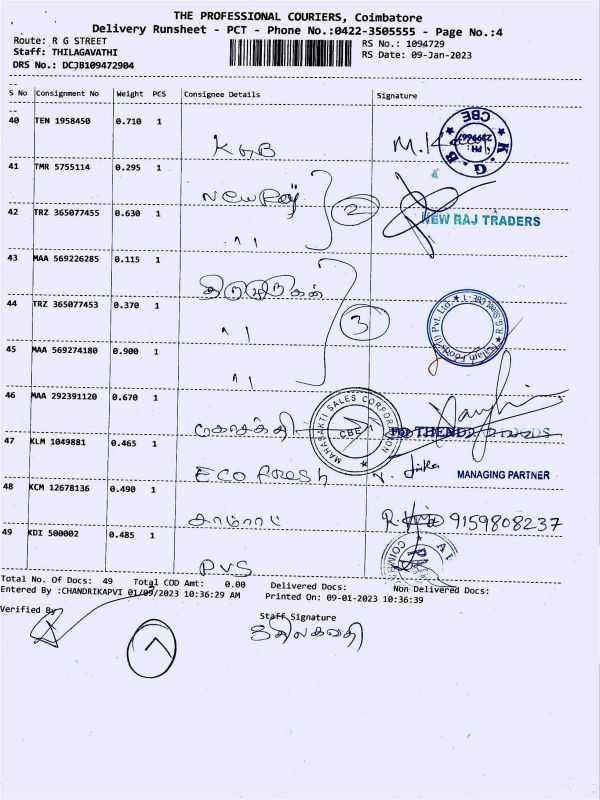 THE PROFESSIONAL COURIERS, Coimbatore
Delivery Runsheet - PCT - Phone No.:0422-3505555 - Page No.:4
Route: R G STREET
RS No.: 1094729
Staff: THILAGAVATHI
RS Date: 09-Jan-2023
DRS No.: DCJB109472904
S No Consignment No Weight PCS Consignee Details Signature
40 TEN 1958450 0.710 1
KGB
K.G.B CBE
41 TMR 5755114 0.295 1
New Raj
2
NEW RAJ TRADERS
42 TRZ 365077455 0.630 1
43 MAA 569226285 0.115 1
44 TRZ 365077453 0.370 1
3
45 MAA 569274180 0.900 1
46 MAA 292391120 0.670 1
MAHASAKTI SALES CORPORATION
CBE
47 KLM 1049881 0.465 1
Eco fresh
MANAGING PARTNER
48 KCM 12678136 0.490 1
9159808237
49 KDI 500002 0.485 1
PVS
Total No. Of Docs: 49 Total COD Amt: 0.00 Delivered Docs: Non Delivered Docs:
Entered By :CHANDRIKAPVI 01/09/2023 10:36:29 AM Printed On: 09-01-2023 10:36:39
Verified By
Staff Signature